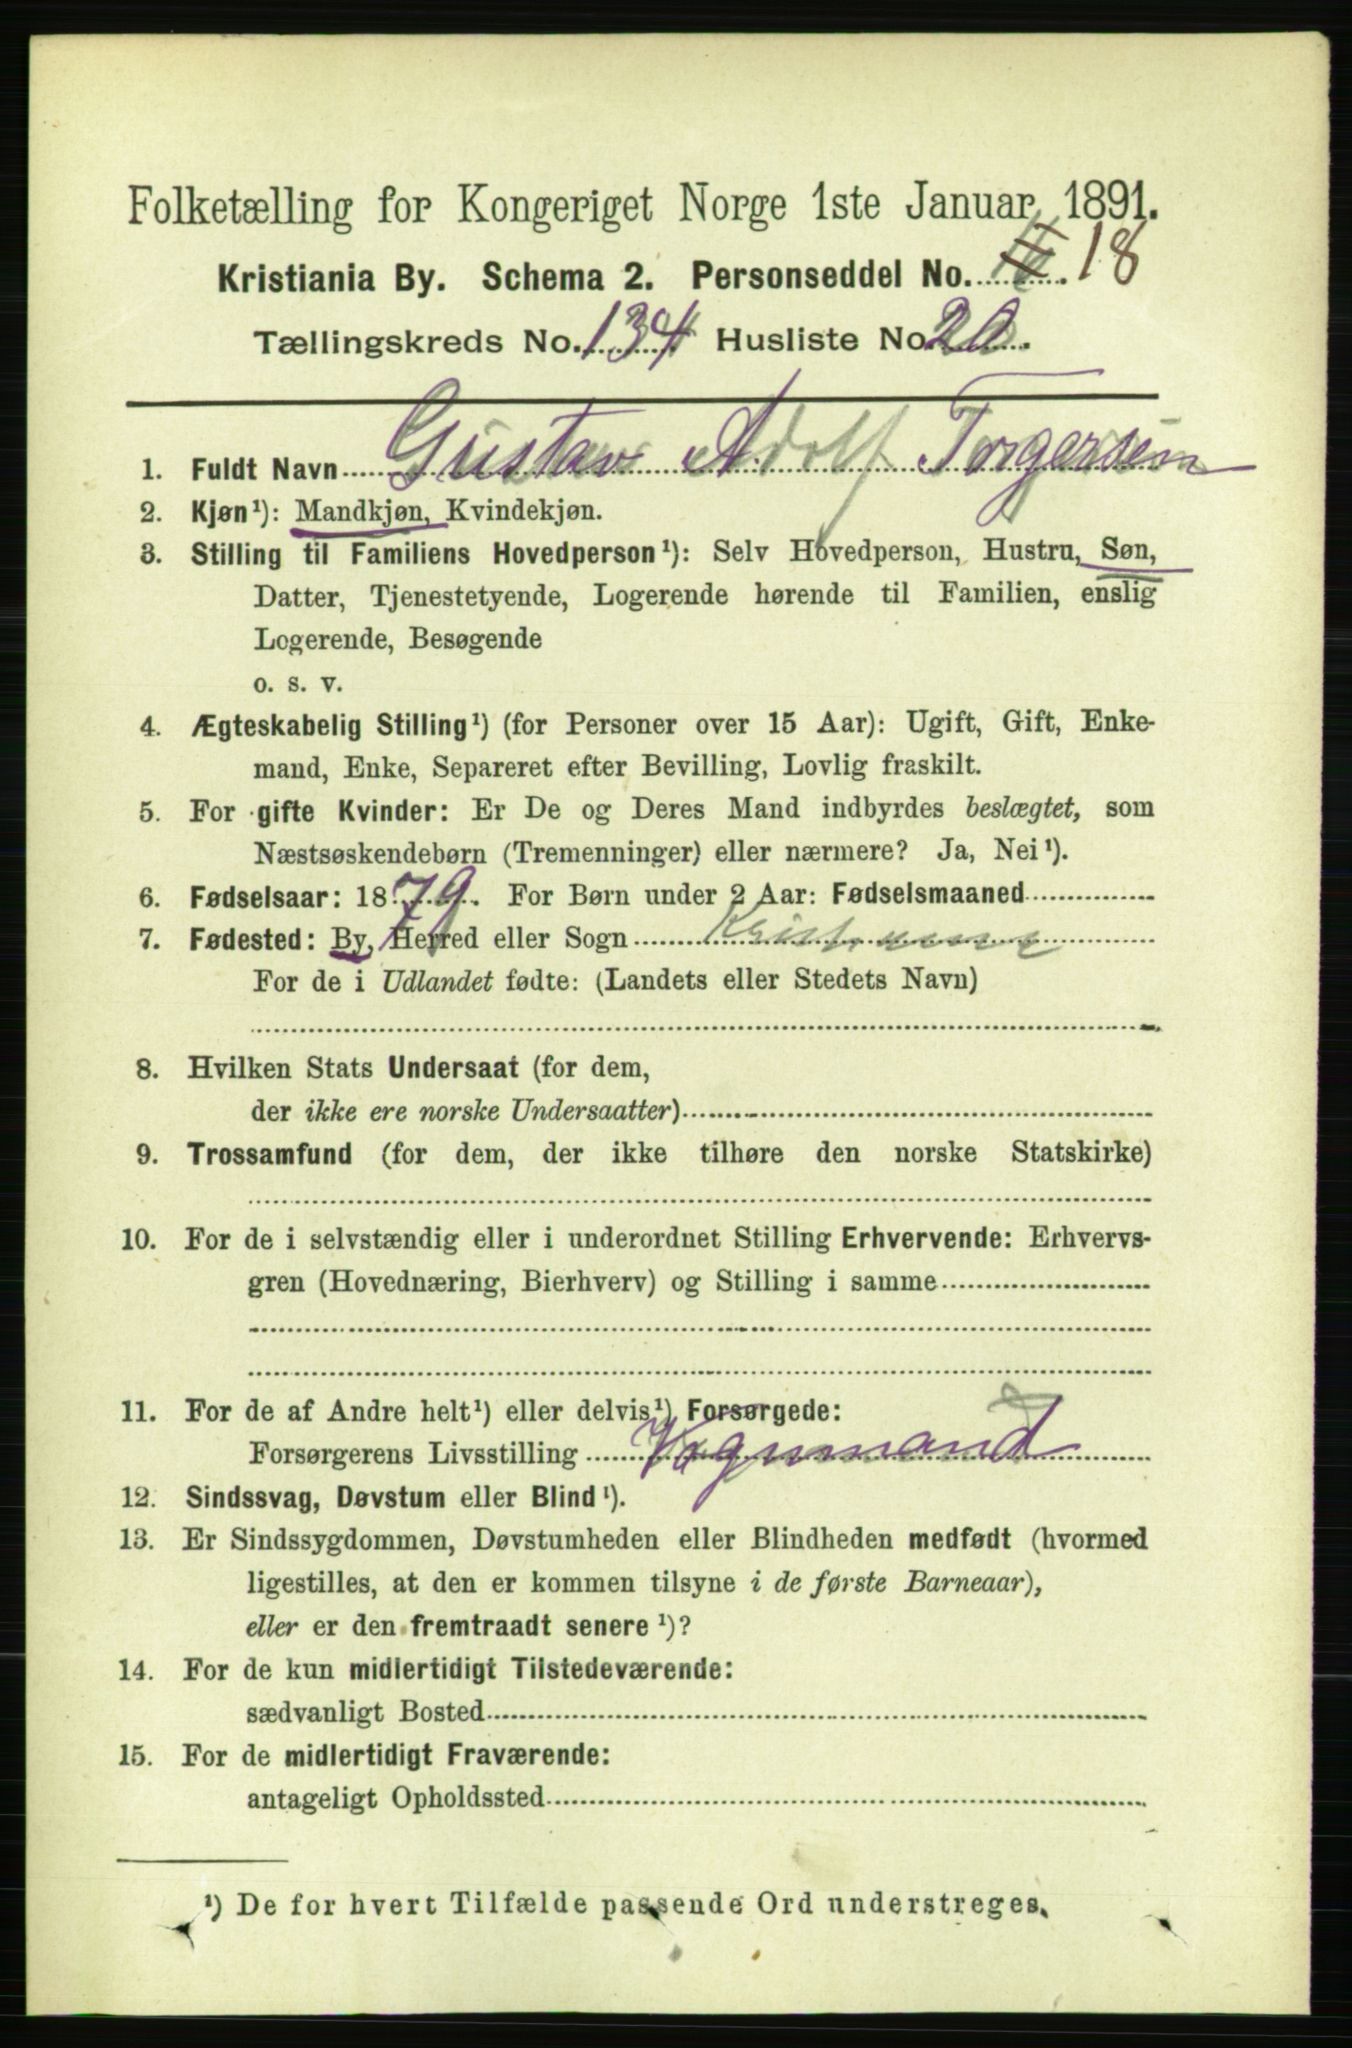 Folketælling for Kongeriget Norge 1ste Januar 1891.
Kristiania By. Schema 2. Personseddel No. 18
Tællingskreds No. 134 Husliste No 20.
1. Fuldt Navn Gustav Adolf Torgersen
2. Kjøn¹): Mandkjøn, Kvindekjøn.
3. Stilling til Familiens Hovedperson¹): Selv Hovedperson, Hustru, Søn,
Datter, Tjenestetyende, Logerende hørende til Familien, enslig
Logerende, Besøgende
o. s. v.
4. Ægteskabelig Stilling¹) (for Personer over 15 Aar): Ugift, Gift, Enke-
mand, Enke, Separeret efter Bevilling, Lovlig fraskilt.
5. For gifte Kvinder: Er De og Deres Mand indbyrdes beslægtet, som
Næstsøskendebørn (Tremenninger) eller nærmere? Ja, Nei¹).
6. Fødselsaar: 1879. For Børn under 2 Aar: Fødselsmaaned
7. Fødested: By, Herred eller Sogn Kristiania
For de i Udlandet fødte: (Landets eller Stedets Navn)
8. Hvilken Stats Undersaat (for dem,
der ikke ere norske Undersaatter)
9. Trossamfund (for dem, der ikke tilhøre den norske Statskirke)
10. For de i selvstændig eller i underordnet Stilling Erhvervende: Erhvervs-
gren (Hovednæring, Bierhverv) og Stilling i samme
11. For de af Andre helt¹) eller delvis¹) Forsørgede:
Forsørgerens Livsstilling Vognmand
12. Sindssvag, Døvstum eller Blind¹).
13. Er Sindssygdommen, Døvstumheden eller Blindheden medfødt (hvormed
ligestilles, at den er kommen tilsyne i de første Barneaar),
eller er den fremtraadt senere¹)?
14. For de kun midlertidigt Tilstedeværende:
sædvanligt Bosted
15. For de midlertidigt Fraværende:
antageligt Opholdssted
¹) De for hvert Tilfælde passende Ord understreges.